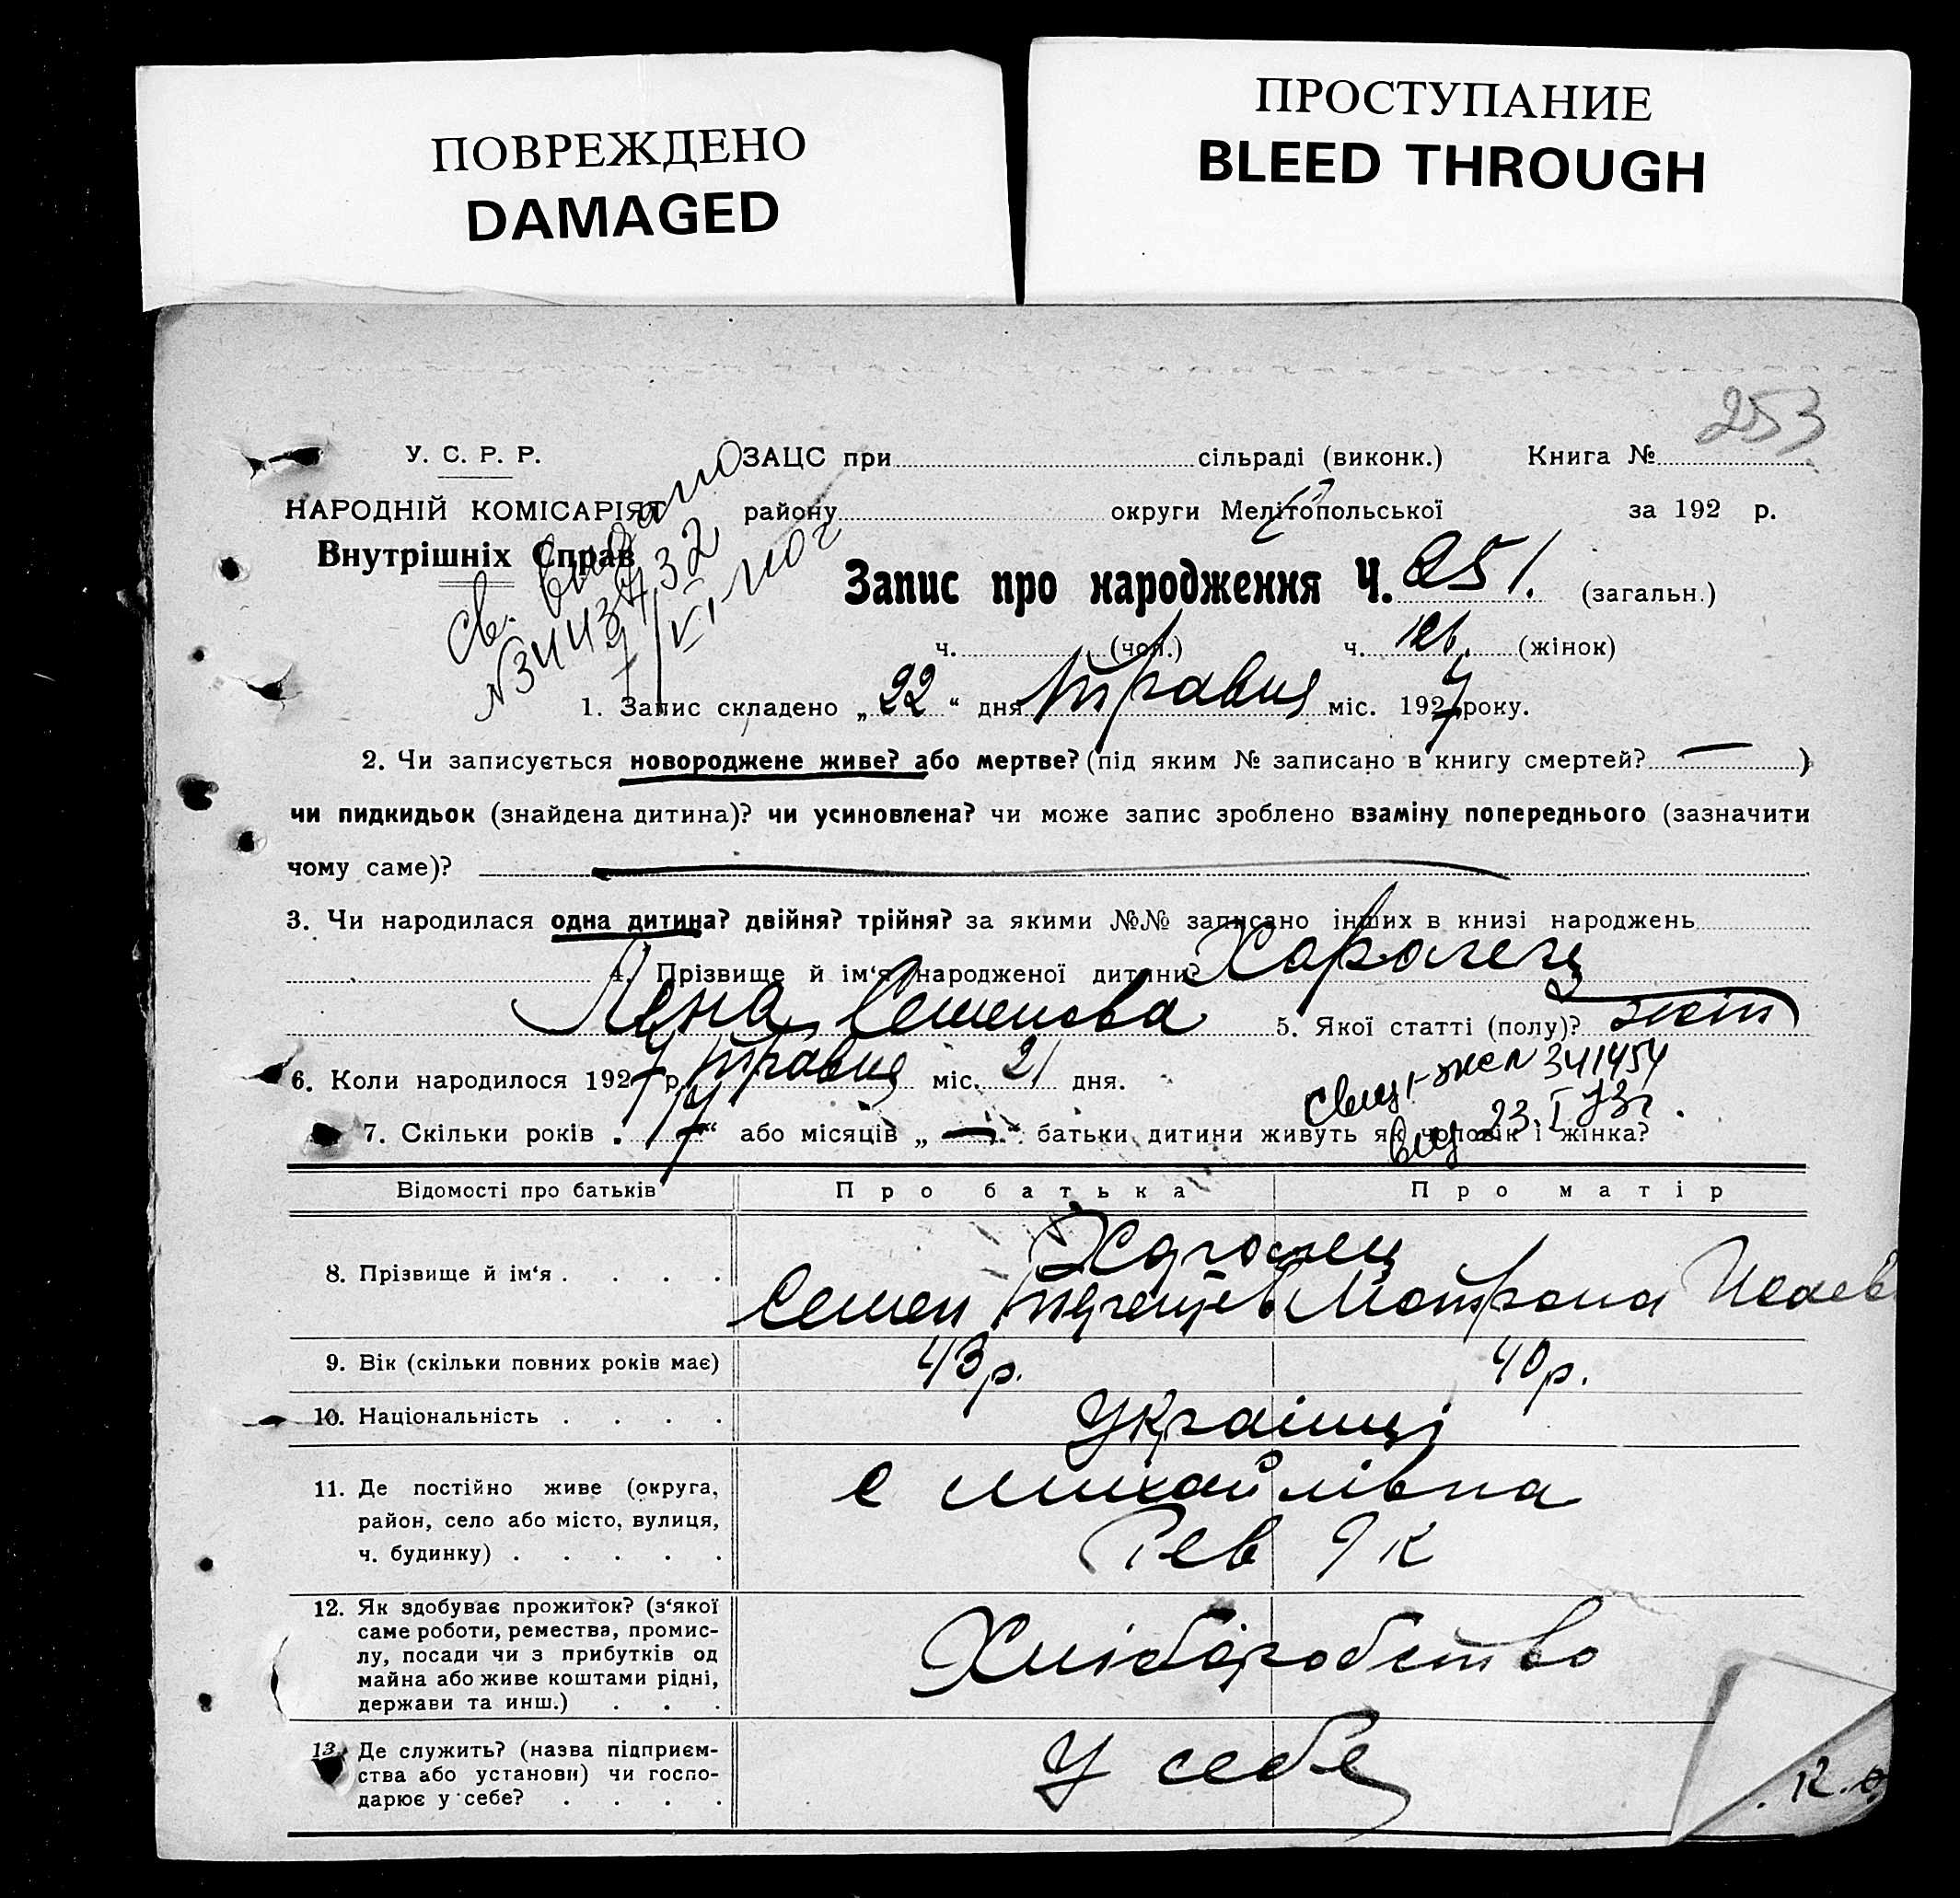 ПОВРЕЖДЕНО
DAMAGED
ПРОСТУПАНИЕ
BLEED THROUGH
253
У. С. Р. Р.
ЗАЦС при сільраді (виконк.) Книга №
НАРОДНІЙ КОМІСАРІЯТ району округи Мелітопольської за 192 р.
Внутрішніх Справ
св. видано
Запис про народження Ч. 251. (загальн.)
ч. (чол.) ч. 121. (жінок)
1. Запис складено „22“ дня травня міс. 1927 року.
2. Чи записується новороджене живе? або мертве? (під яким № записано в книгу смертей? — )
чи пидкидьок (знайдена дитина)? чи усиновлена? чи може запис зроблено взаміну попереднього (зазначити
чому саме)?
3. Чи народилася одна дитина? двійня? трійня? за якими №№ записано інших в книзі народжень
4. Прізвище й ім‘я народженої дитини?
Семенова 5. Якої статті (полу)? жін
6. Коли народилося 1927 р. травня міс. 21 дня.
341454
23. I 73г.
7. Скільки років „17“ або місяців „—“ батьки дитини живуть як чоловік і жінка?
Відомості про батьків Про батька Про матір
8. Прізвище й ім‘я . . . .
Семен Матрона Исаев
9. Вік (скільки повних років має) 43 р. 40 р.
10. Національність . . . . Українці
11. Де постійно живе (округа, с Михайлівка
район, село або місто, вулиця, Рев 9 к
ч. будинку) . . . . .
12. Як здобуває прожиток? (з‘якої
саме роботи, ремества, промис-
лу, посади чи з прибутків од Хліборобство
майна або живе коштами рідні,
держави та инш.) . . .
13. Де служить? (назва підприєм- У себе
ства або установи) чи госпо-
дарює у себе? . . . .